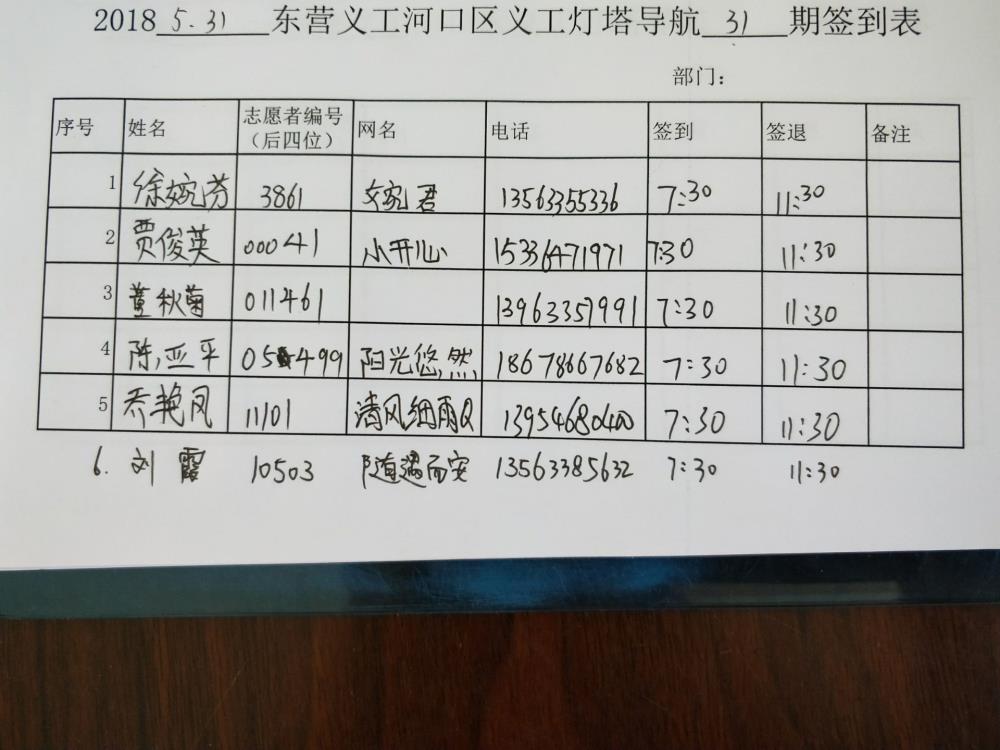 2018 5.31 东营义工河口区义工灯塔导航 31 期签到表
部门：
序号 姓名 志愿者编号（后四位） 网名 电话 签到 签退 备注
1 徐婉芬 3861 婉君 13563355336 7:30 11:30
2 贾俊英 00041 小开心 15336471971 7:30 11:30
3 董秋菊 011461 13963357991 7:30 11:30
4 陈亚平 05499 阳光悠然 18678667682 7:30 11:30
5 乔艳凤 11101 清风细雨Q 13954680400 7:30 11:30
6. 刘霞 10503 随遇而安 13563385632 7:30 11:30